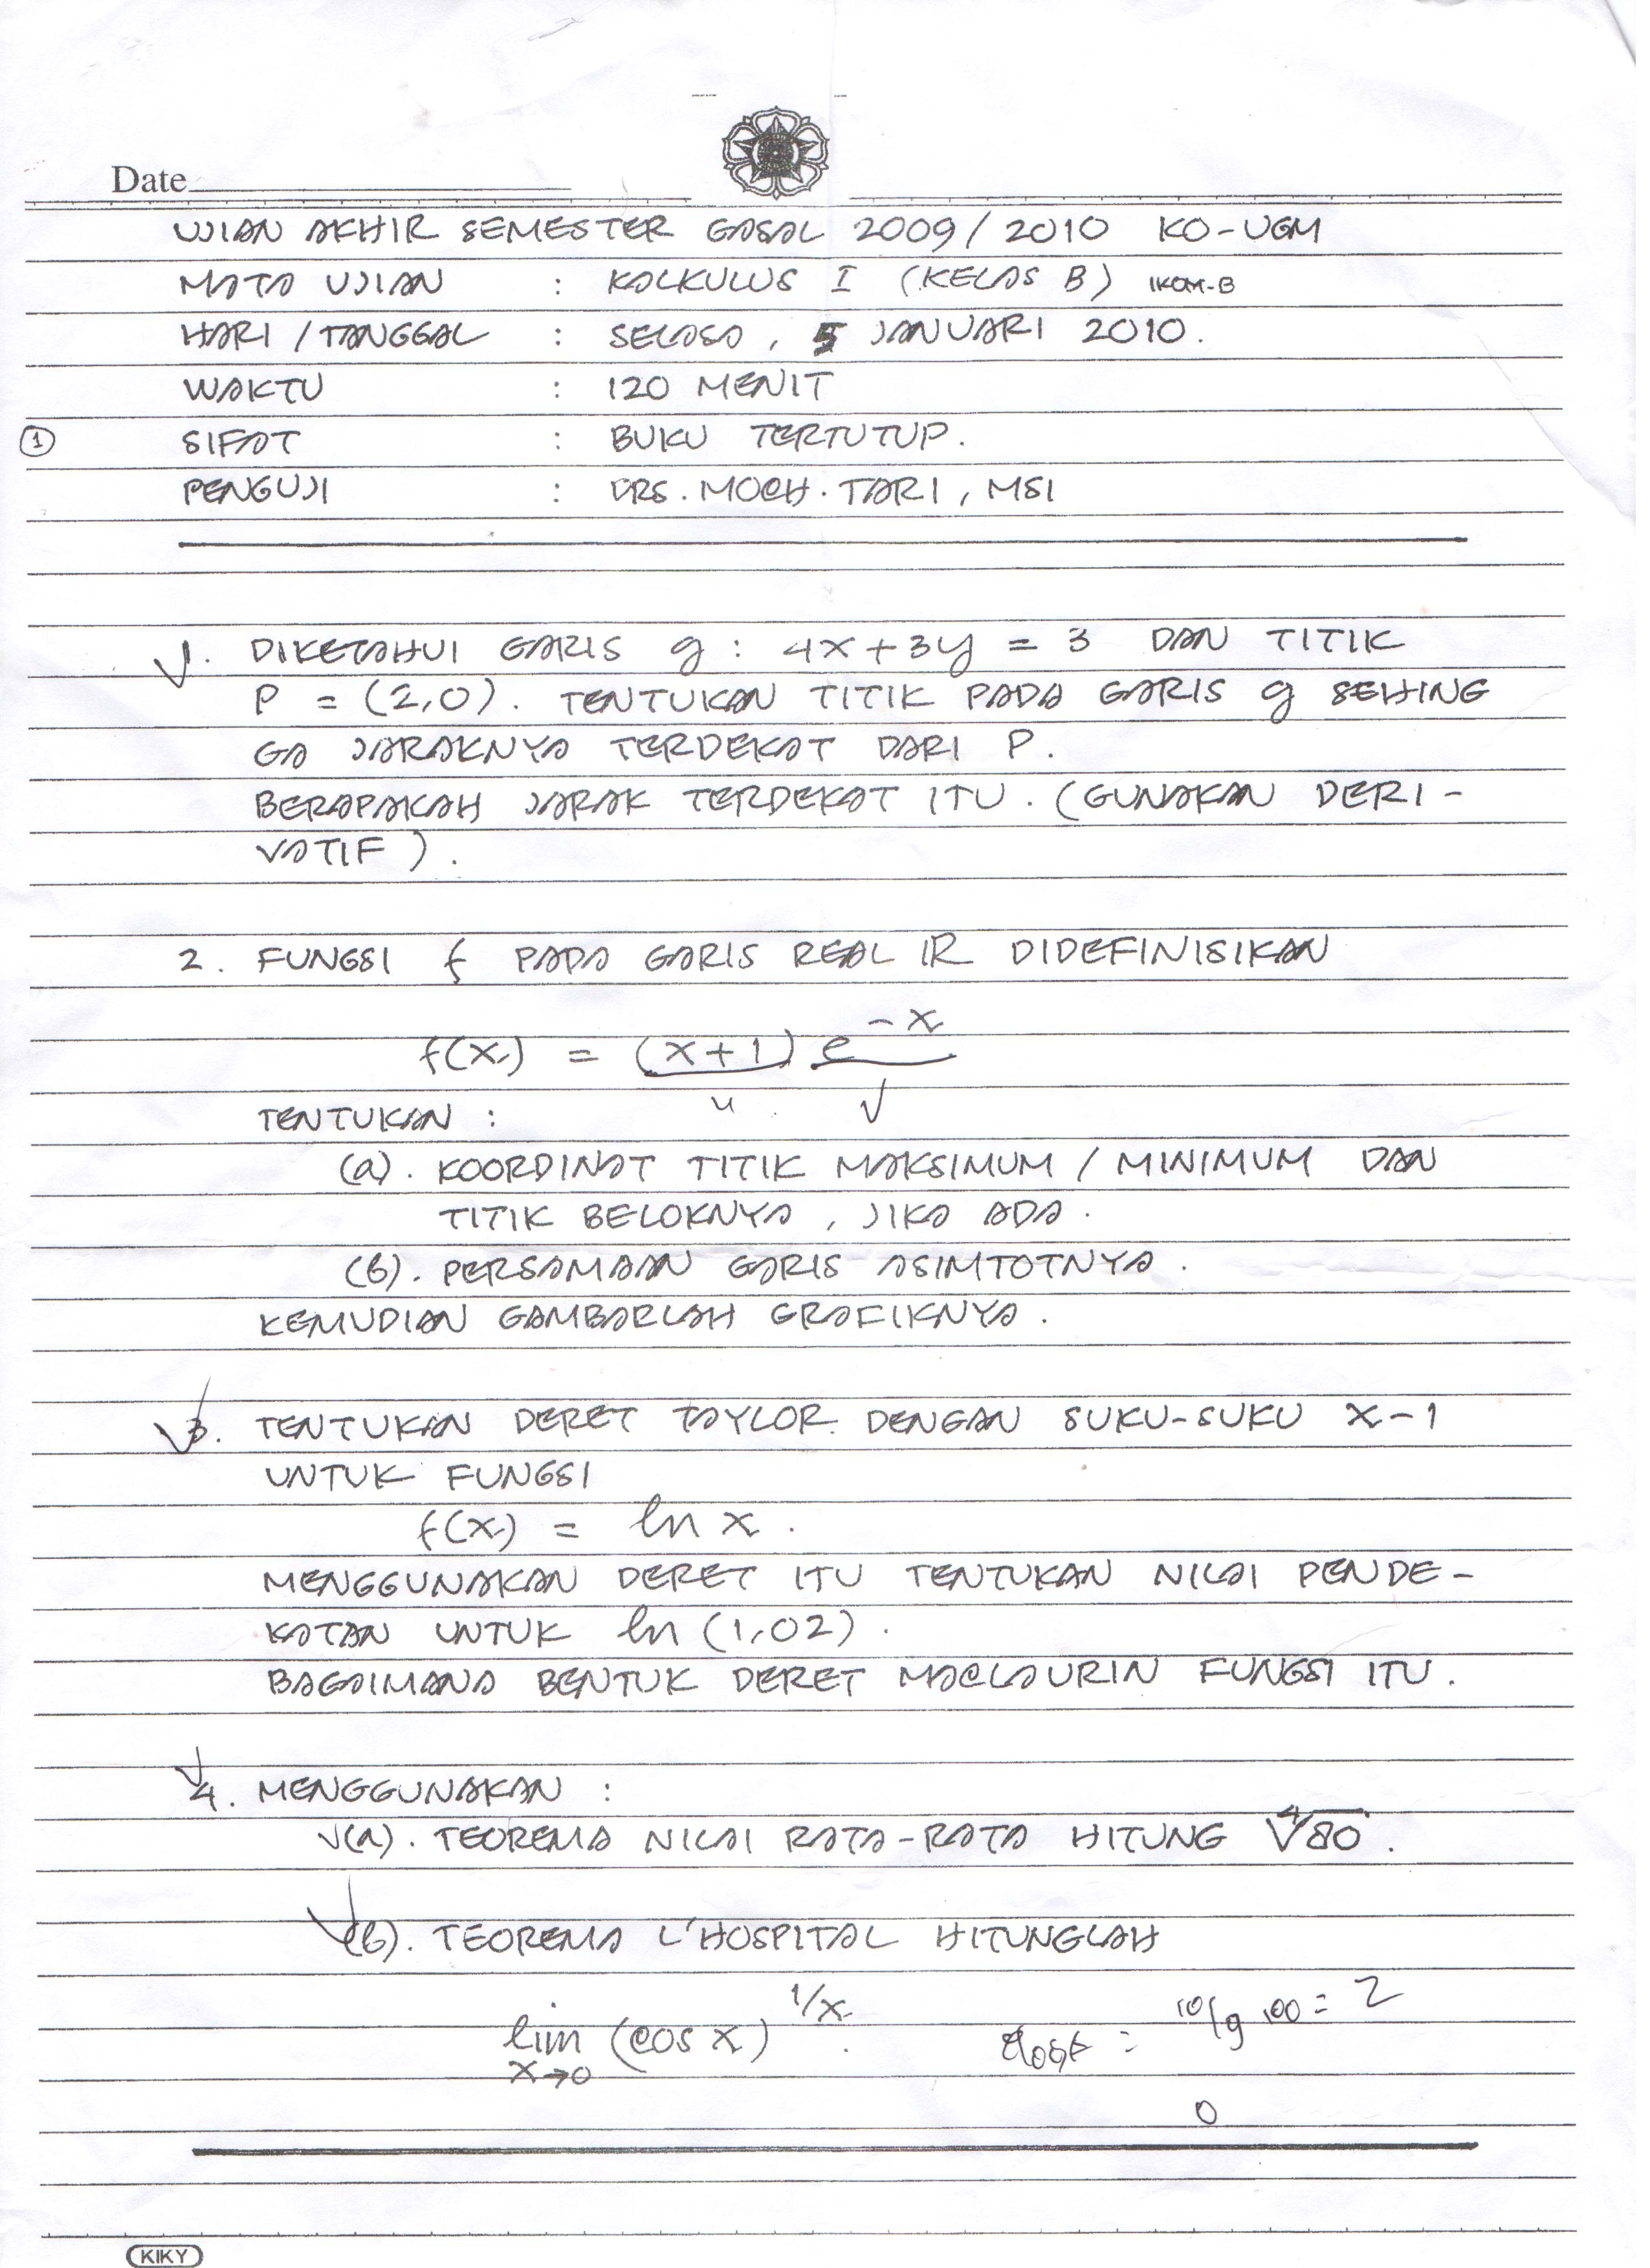 Date
UJIAN AKHIR SEMESTER GASAL 2009/2010 KO-UGM
MATA UJIAN : KALKULUS I (KELAS B) IKOM-B
HARI / TANGGAL : SELASA, 5 JANUARI 2010.
WAKTU : 120 MENIT
① SIFAT : BUKU TERTUTUP.
PENGUJI : DRS. MOCH. TARI, MSI
1. DIKETAHUI GARIS g : 4x + 3y = 3 DAN TITIK
P = (2,0). TENTUKAN TITIK PADA GARIS g SEHING
GA JARAKNYA TERDEKAT DARI P.
BERAPAKAH JARAK TERDEKAT ITU. (GUNAKAN DERI-
VATIF).
2. FUNGSI f PADA GARIS REAL IR DIDEFINISIKAN
f(x) = (x+1) e^{-x}
u v
TENTUKAN :
(a). KOORDINAT TITIK MAKSIMUM / MINIMUM DAN
TITIK BELOKNYA, JIKA ADA.
(b). PERSAMAAN GARIS ASIMTOTNYA.
KEMUDIAN GAMBARLAH GRAFIKNYA.
3. TENTUKAN DERET TAYLOR DENGAN SUKU-SUKU x-1
UNTUK FUNGSI
f(x) = ln x.
MENGGUNAKAN DERET ITU TENTUKAN NILAI PENDE-
KATAN UNTUK ln (1,02).
BAGAIMANA BENTUK DERET MACLAURIN FUNGSI ITU.
4. MENGGUNAKAN :
(a). TEOREMA NILAI RATA-RATA HITUNG ∜80.
(b). TEOREMA L'HOSPITAL HITUNGLAH
lim (cos x)^{1/x}.
x→0
10lg 100 = 2
0
KIKY